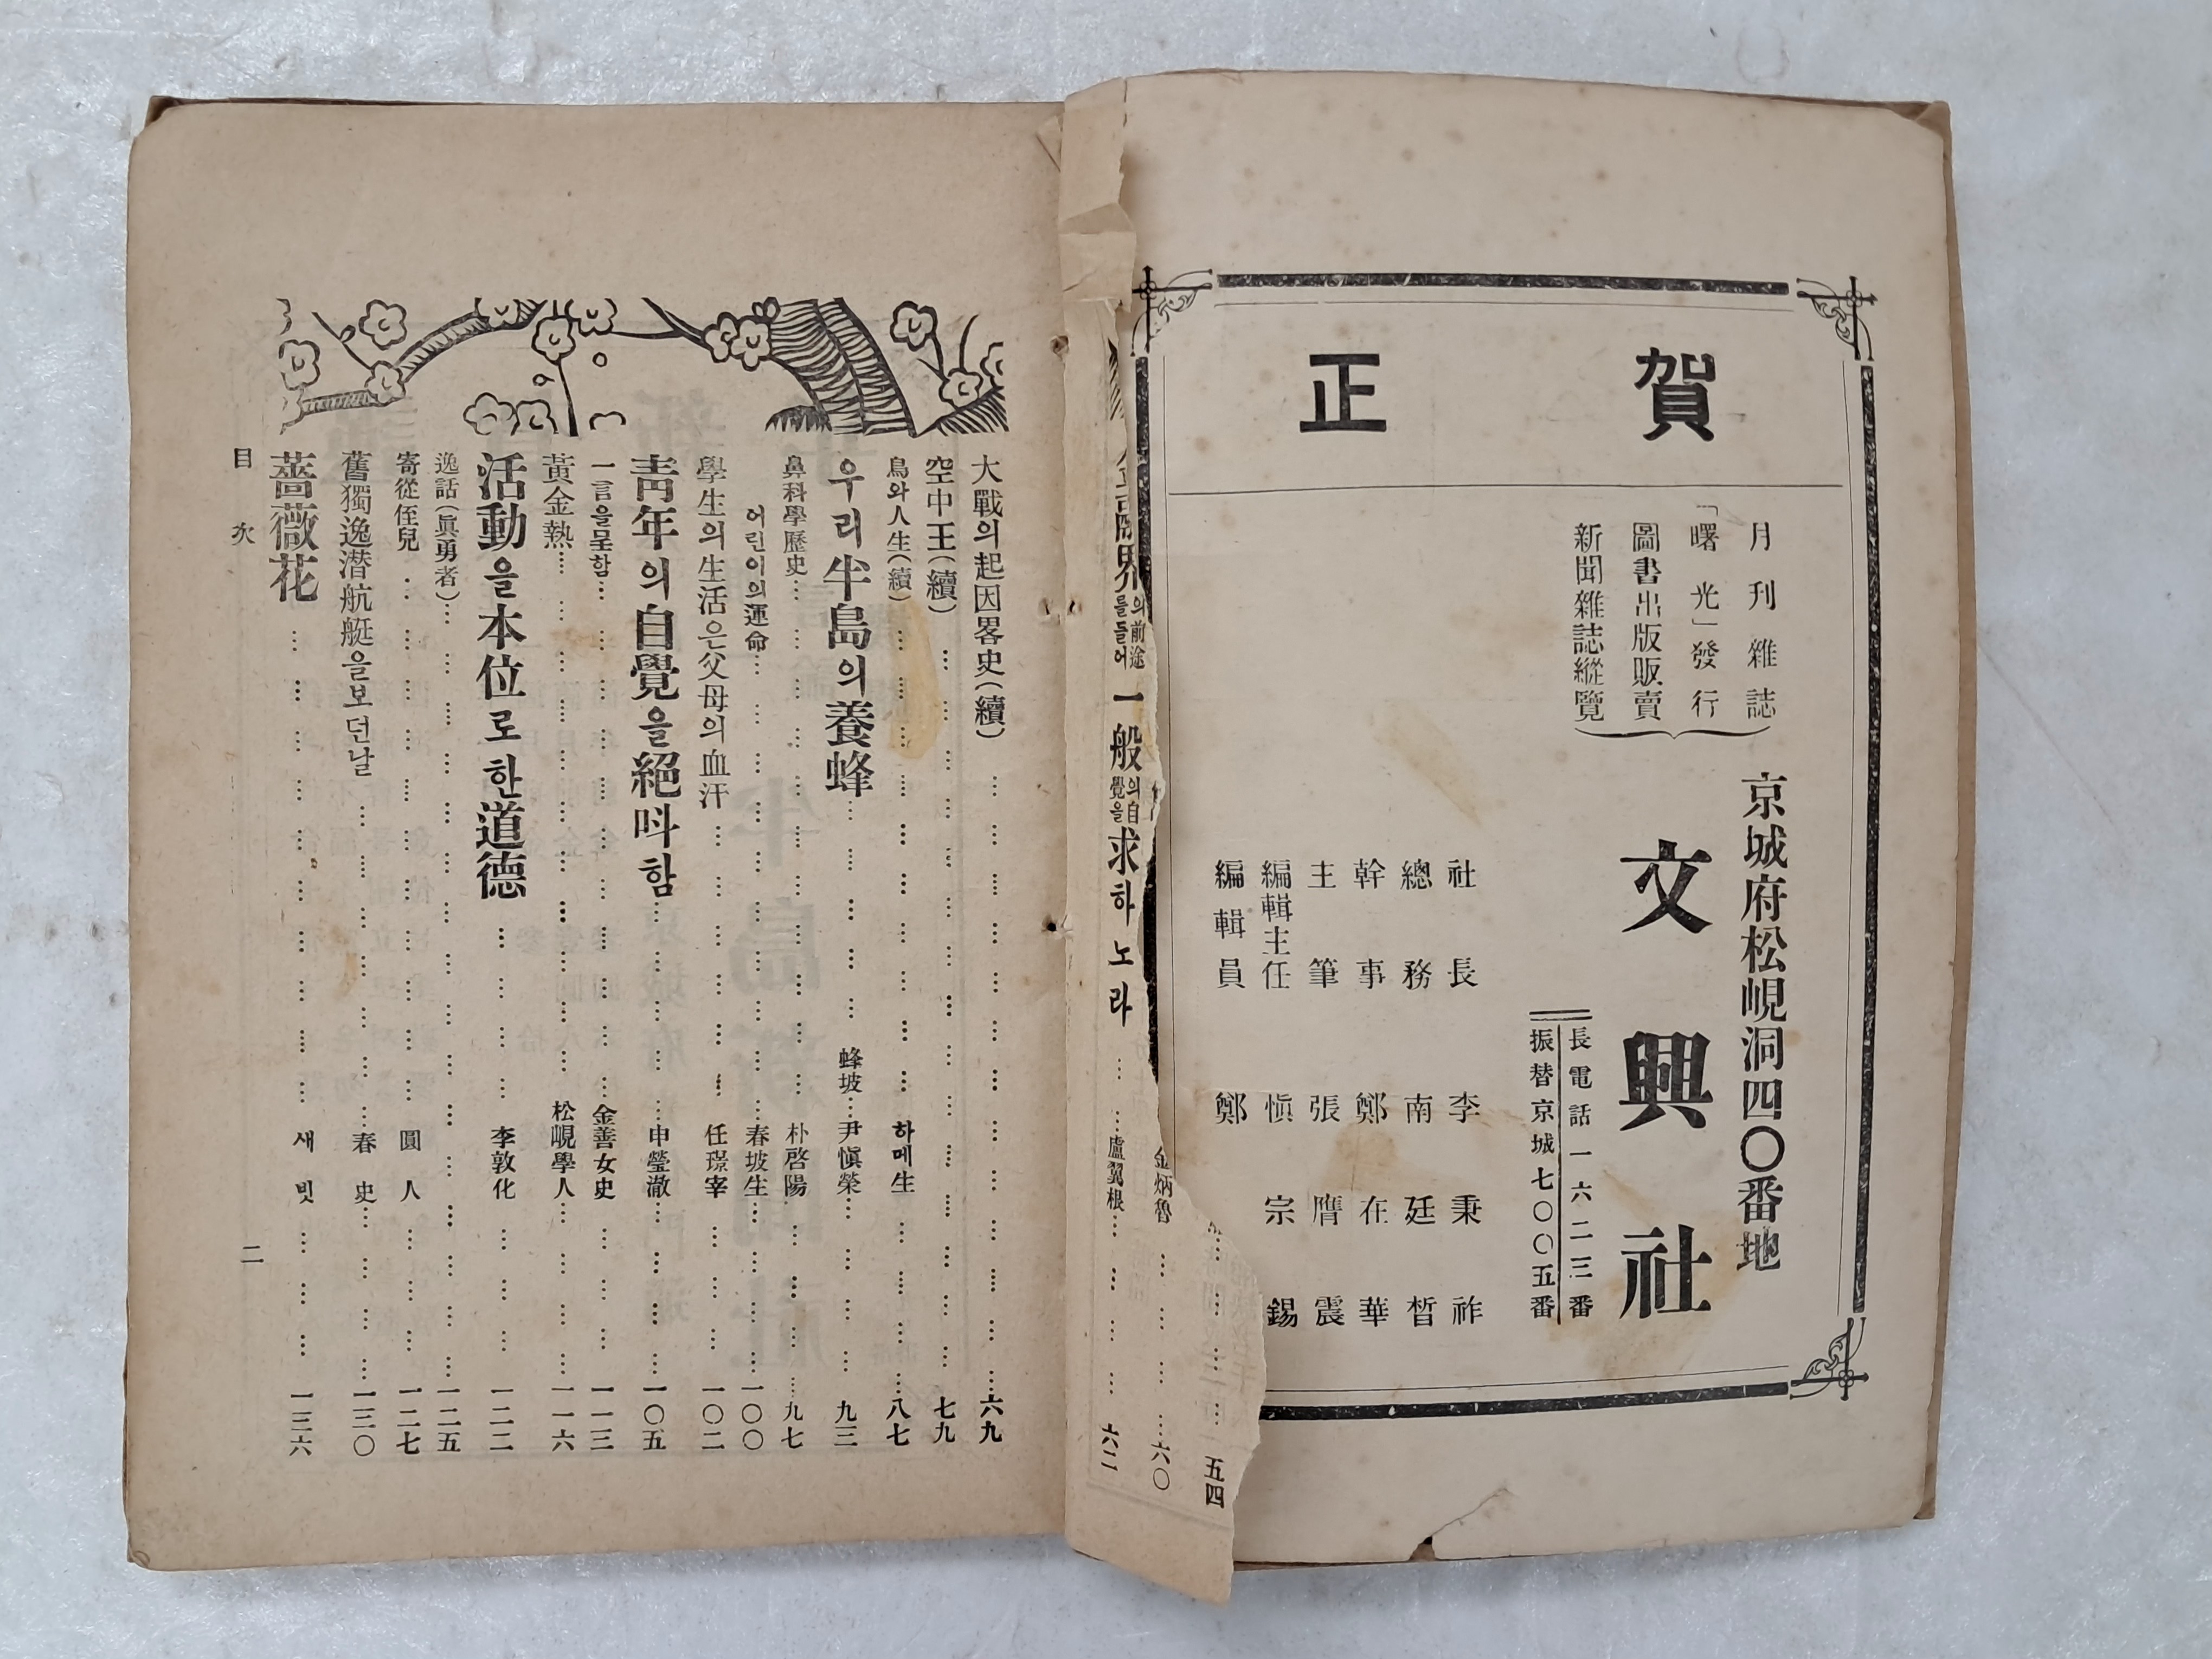 賀正
月刊雜誌
「曙光」發行
圖書出版販賣
新聞雜誌縱覽
京城府松峴洞四〇番地
文興社
長電話一六二三番
振替京城七〇〇五番
社長 李秉祚
總務 南廷晳
幹事 鄭在華
主筆 張膺震
編輯主任 愼宗錫
編輯員 鄭
五四
金炳魯 六〇
界의前途를들어一般의自覺을求하노라 盧翼根 六二
大戰의起因畧史(續) 六九
空中王(續) 七九
鳥와人生(續) 하메生 八七
우리半島의養蜂 蜂坡 尹愼榮 九三
鼻科學歷史 朴啓陽 九七
어린이의運命 春坡生 一〇〇
學生의生活은父母의血汗 任璟宰 一〇二
靑年의自覺을絕呌함 申瑩澈 一〇五
一言을呈함 金善女史 一一三
黃金熱 松峴學人 一一六
活動을本位로한道德 李敦化 一二二
逸話(眞勇者) 一二五
寄從侄兒 圓人 一二七
舊獨逸潜航艇을보던날 春史 一三〇
薔薇花 새빗 一三六
目次 二